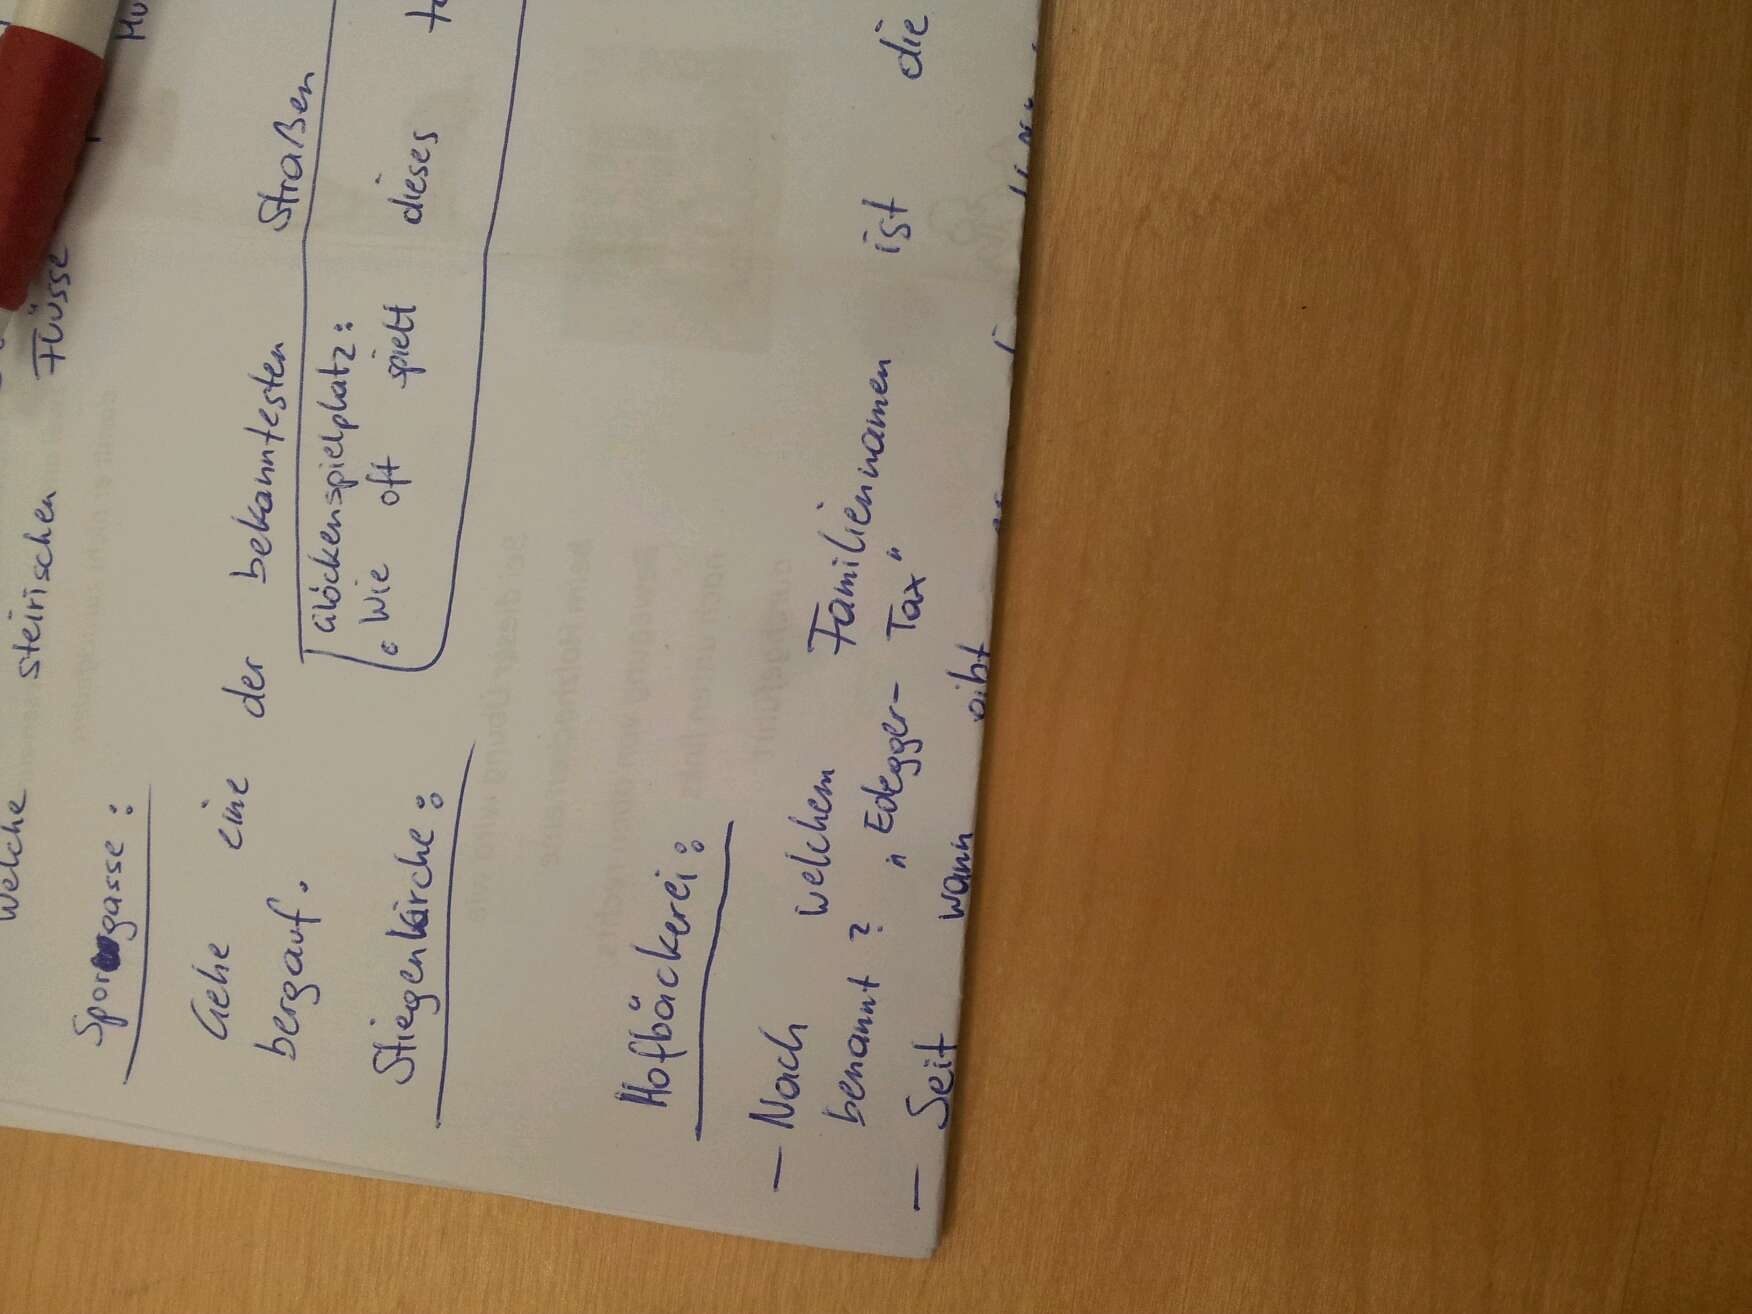 welche steirischen Flüsse
Sporgasse:
Gehe eine der bekanntesten Straßen
bergauf.
Glockenspielplatz:
Wie oft spielt dieses
Stiegenkirche:
Hofbäckerei:
- Nach welchem Familiennamen ist die
benannt? "Edegger-Tax"
- Seit wann gibt